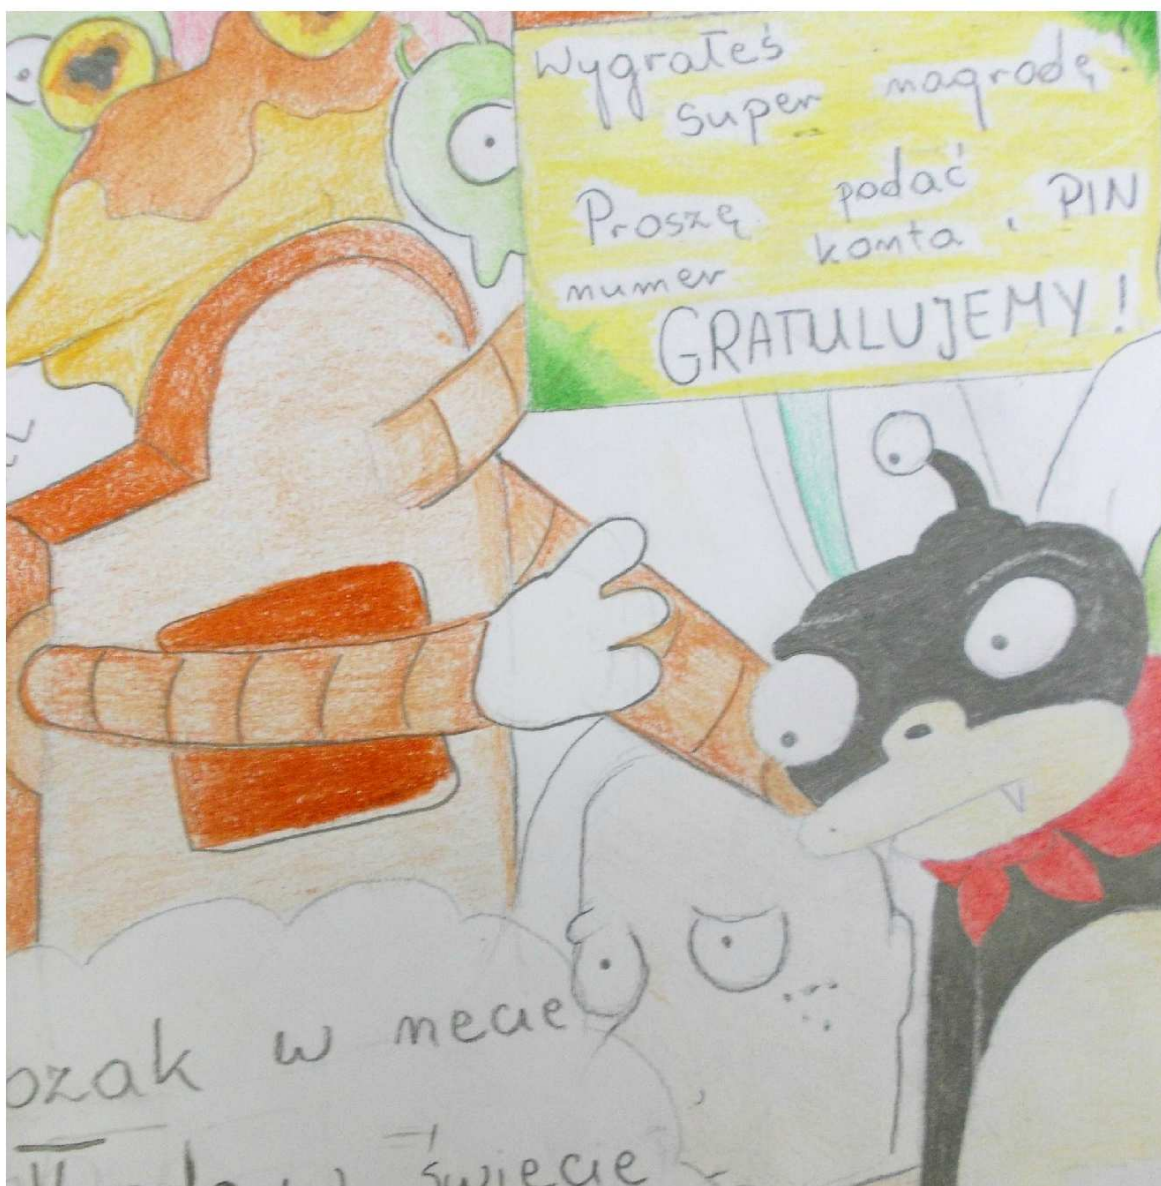 Wygrałeś
super nagrodę!
Proszę podać
numer konta i PIN
GRATULUJEMY!
w necie
świecie